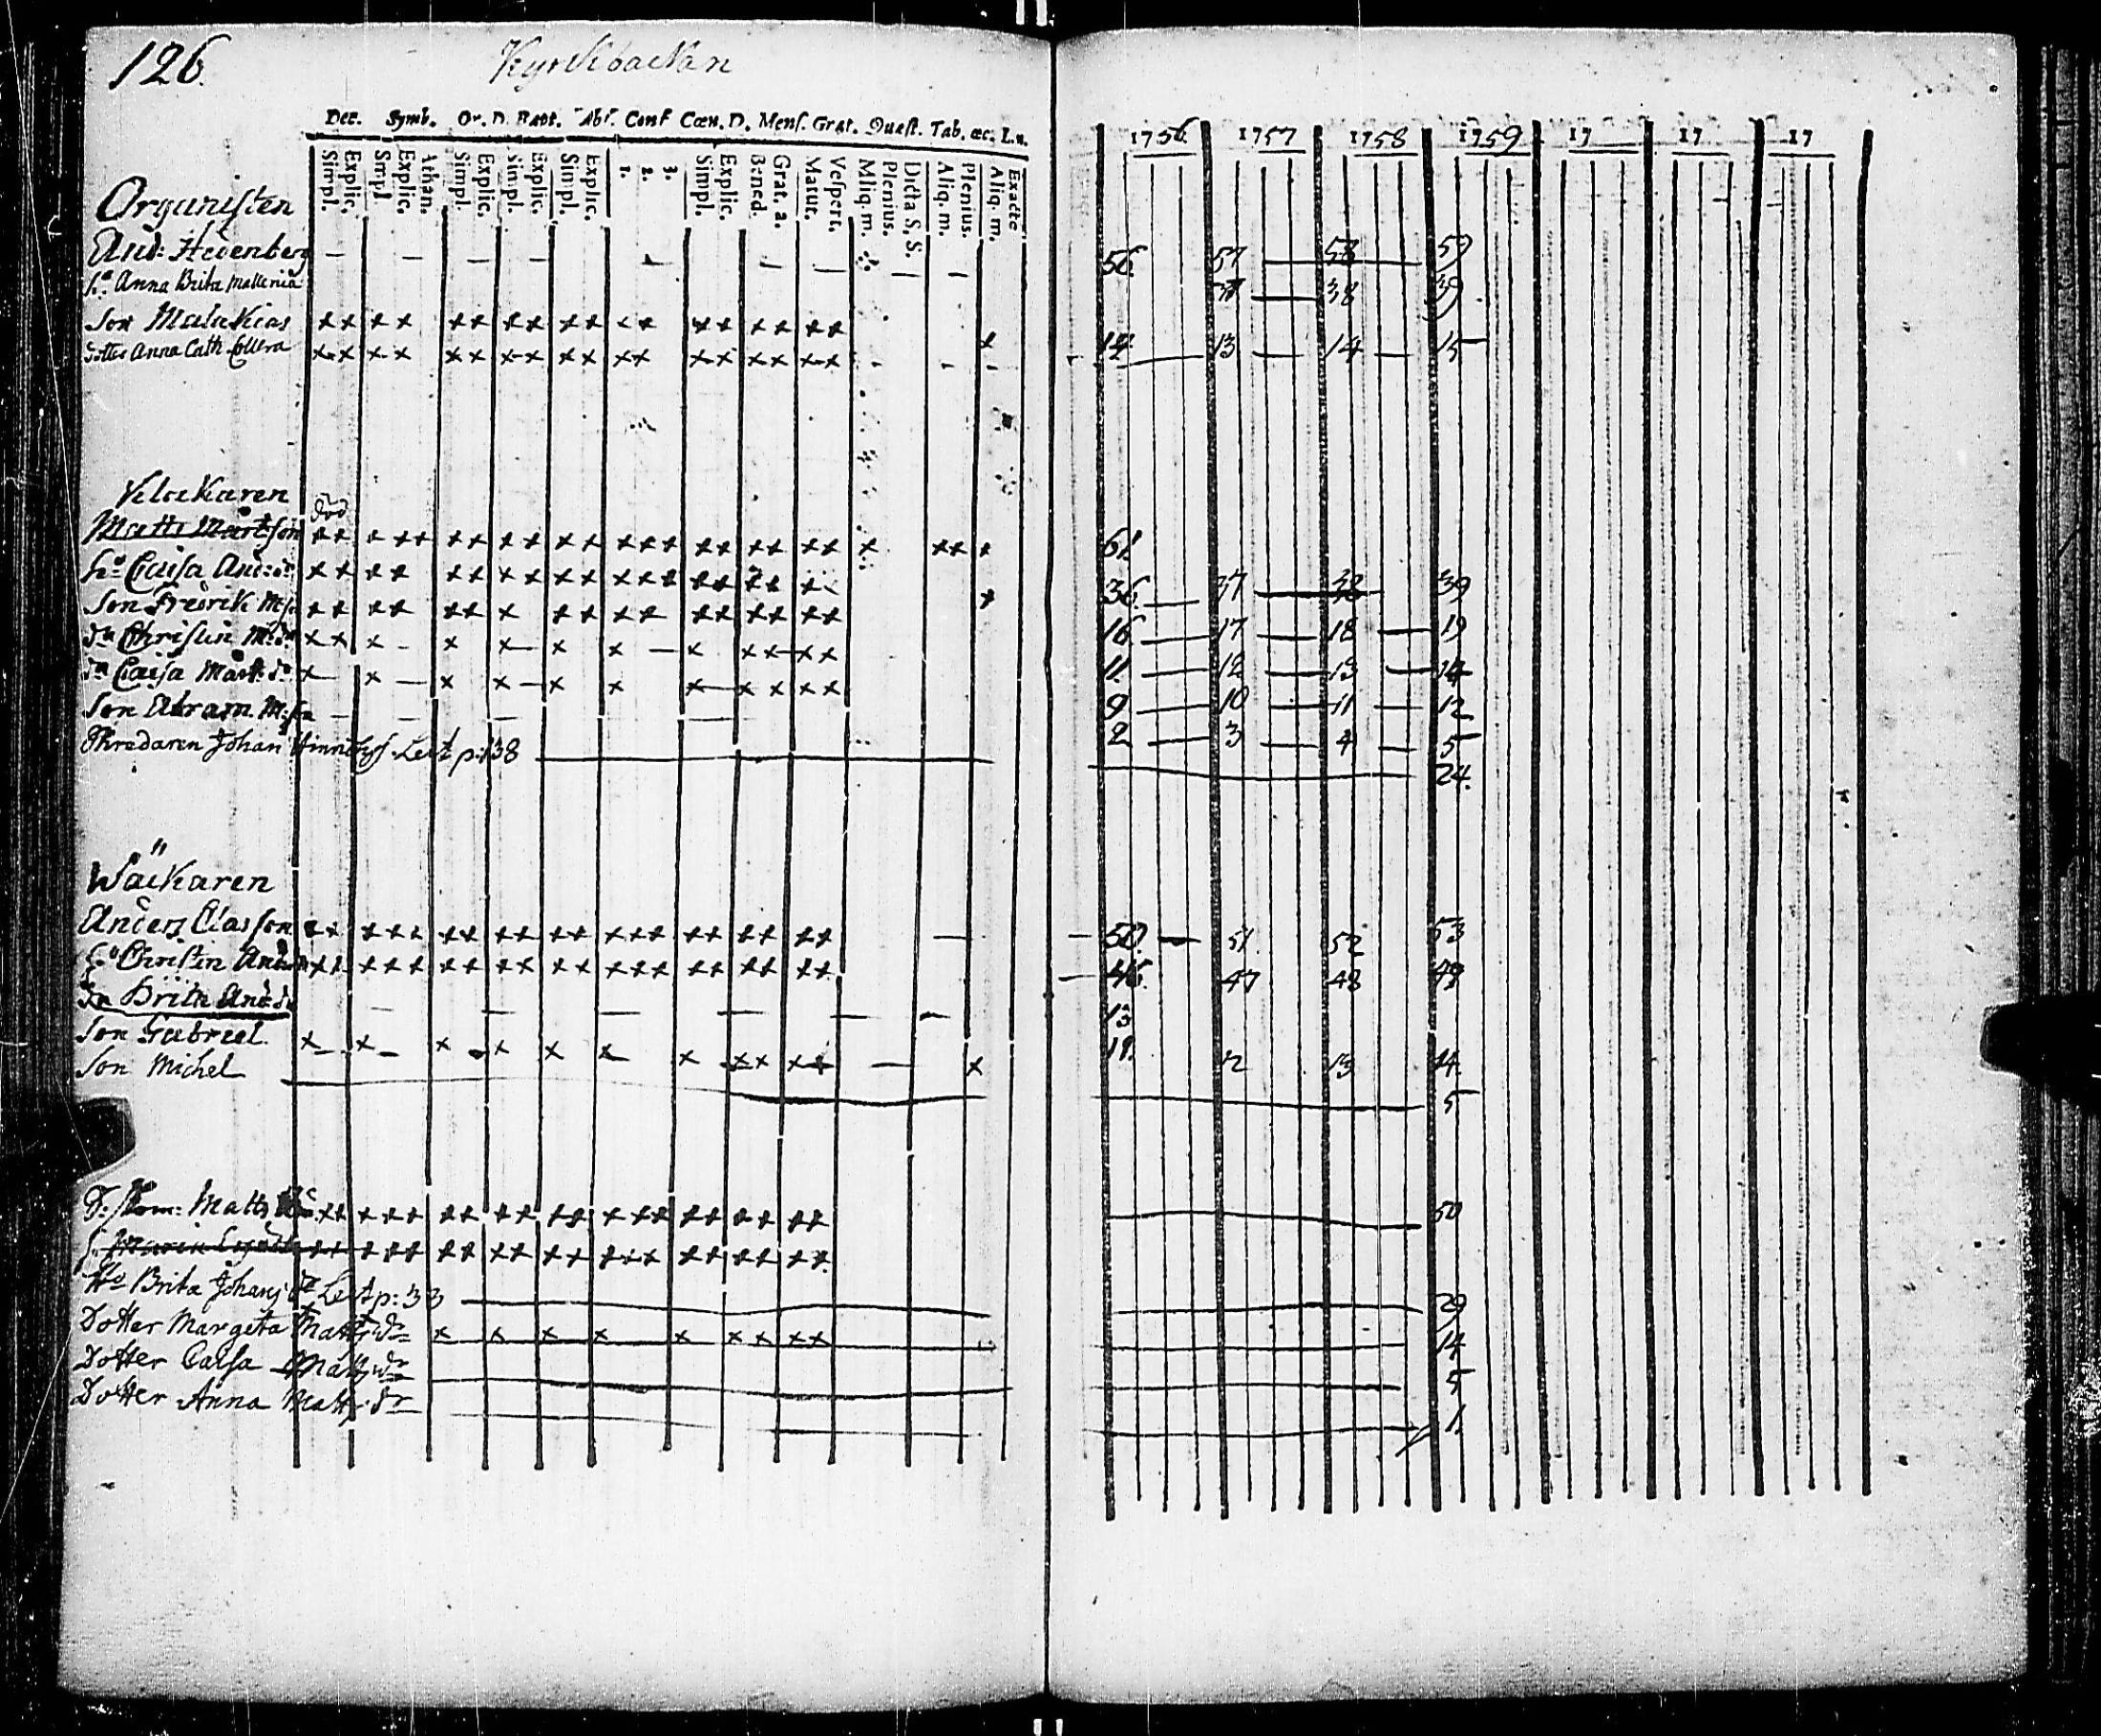 126. Kyrkbackan
Dec. Symb. Or. D. Bapt. Abs. Conf Cœn. D. Mens. Grat. Quæst. Tab. œc. Lu.
Simpl. Explic. Simpl Explic. Athan. Simpl. Explic. Simpl. Explic. Simpl. Explic. 1. 2. 3. Simpl. Explic. Bened. Grat. a. Matut. Vespert. Aliq. m. Plenius. Dicta S. S. Aliq. m. Plenius. Aliq. m. Exacte
1756 1757 1758 1759 17 17 17
Organisten
And: Hedenberg 56. 57 58 59
h:u Anna Brita 37 38 39
Son Malakias
dotter Anna Cath 12 13 14 15
Klockaren
död
Matts Mårtsson 61.
h:u Caisa And: d:r 36. 37 38 39
Son Fredrik M:son 16 17 18 19
d:r Christin M:d:r 11 12 13 14
d:r Caisa Matt: d:r 9 10 11 12
Son Abram M:son 2 3 4 5
Skredaren Johan Hinrichss. Lect p. 138 24.
Wäckaren
Anders Classon 50. 51. 52 53
h:u Christin And: 46. 47 48 49
d:r Brita And: d:r 13
Son Gabriel 11. 12 13 14.
Son Michel 5
Matts 50
H:u Brita Johans d:r Lect p: 33 29
Dotter Margeta Matts d:r 14
Dotter Caisa Matts d:r 5
Dotter Anna Matts d:r 1